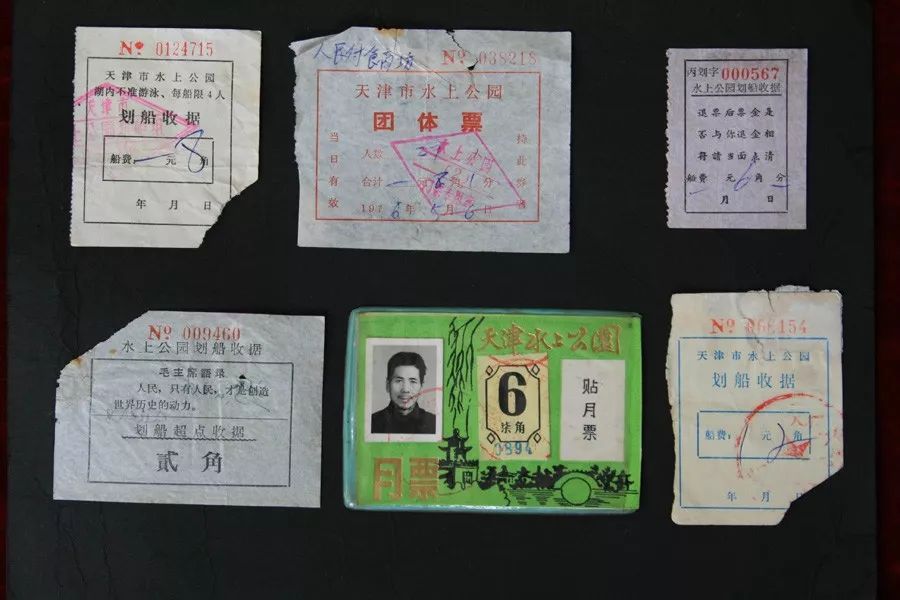 No 0124715
天津市水上公园
湖内不准游泳、每船限4人
划船收据
船费: 一元8角
年 月 日
人民付食商场
No 038218
天津市水上公园
团体票
当日有效
人数
合计 一元6角 分
1976年5月6日
持此容署
丙划字 000567
水上公园划船收据
退票后票金是
否与你退金相
符請当面点清
船费 元6角 分
月 日
No 009460
水上公园划船收据
毛主席語录
人民,只有人民,才是创造
世界历史的动力。
划船超点收据
贰角
天津水上公園
6
柒角
0894
贴月票
月票
No 068154
天津市水上公园
划船收据
船费: 1元2角
年 月 日